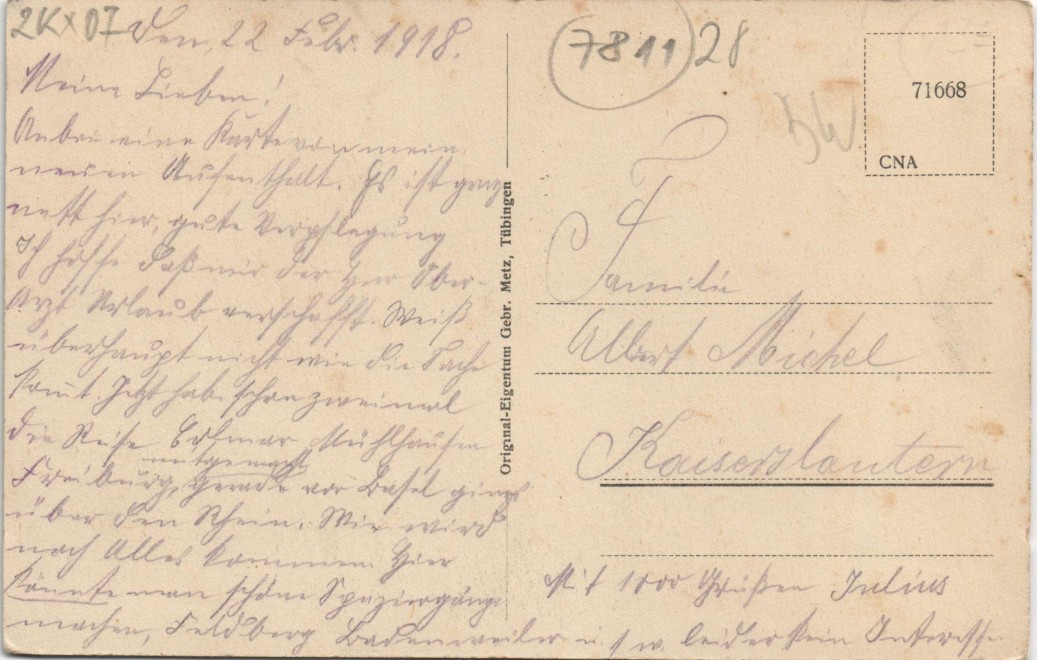 2K x 07
Den 22 Febr. 1918.
Meine Lieben!
Anbei eine Karte von mein
neuen Aufenthalt. Es ist ganz
nett hier, gute Verpflegung
Ich hoffe daß mir der Herr Ober-
Arzt Urlaub verschafft. Weiß
überhaupt nicht wie die Sache
kommt. Jetzt habe schon zweimal
die Reise Colmar Mühlhausen
mitgemacht
Freiburg, gerade vor Basel gings
über den Rhein. Wie wird
noch Alles kommen. Hier
könnte man schöne Spaziergänge
machen, Feldberg Badenweiler u. s w. leider kein Interesse.
Mit 1000 Grüßen Julius
Original-Eigentum Gebr. Metz, Tübingen
7811 28
BW.
71668
CNA
Familie
Albert Michel
Kaiserslautern